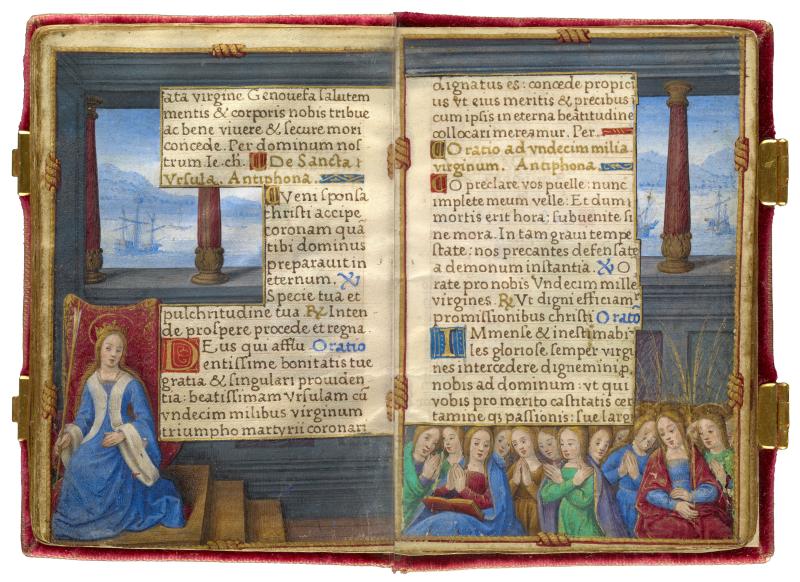 ata virgine Genouefa salutem
mentis & corporis nobis tribue
ac bene viuere & secure mori
concede. Per dominum nos
trum Ie. ch. De Sancta
Vrsula. Antiphona.
Veni sponsa
christi accipe
coronam quã
tibi dominus
preparauit in
eternum. ℣
Specie tua et
pulchritudine tua ℟ Inten
de prospere procede et regna.
DEus qui afflu Oratio
dentissime bonitatis tue
gratia & singulari prouiden
tia: beatissimam Vrsulam cũ
vndecim milibus virginum
triumpho martyrii coronari
dignatus es: concede propici
us vt eius meritis & precibus
cum ipsis in eterna beatitudine
collocari mereamur. Per.
Oratio ad vndecim milia
virginum. Antiphona.
O preclare vos puelle: nunc
implete meum velle. Et dum
mortis erit hora: subuenite si
ne mora. In tam graui tempe
state: nos precantes defensate
a demonum instantia. ℣ O
rate pro nobis Vndecim mille
virgines. ℟ Vt digni efficiam
promissionibus christi Oratio
IMmense & inestimabi
les gloriose semper virgi
nes intercedere dignemini p
nobis ad dominum: vt qui
vobis pro merito castitatis cer
tamine qz passionis: sue larg